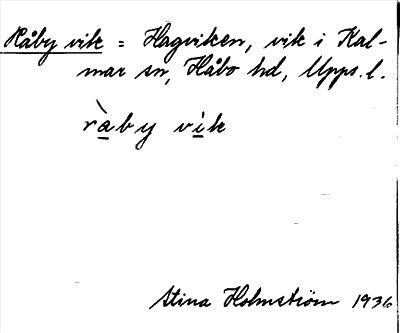 Råby vik = Hagviken, vik i Kal-
mar sn, Håbo hd, Upps. l.
ràby vìk
Stina Holmström 1936